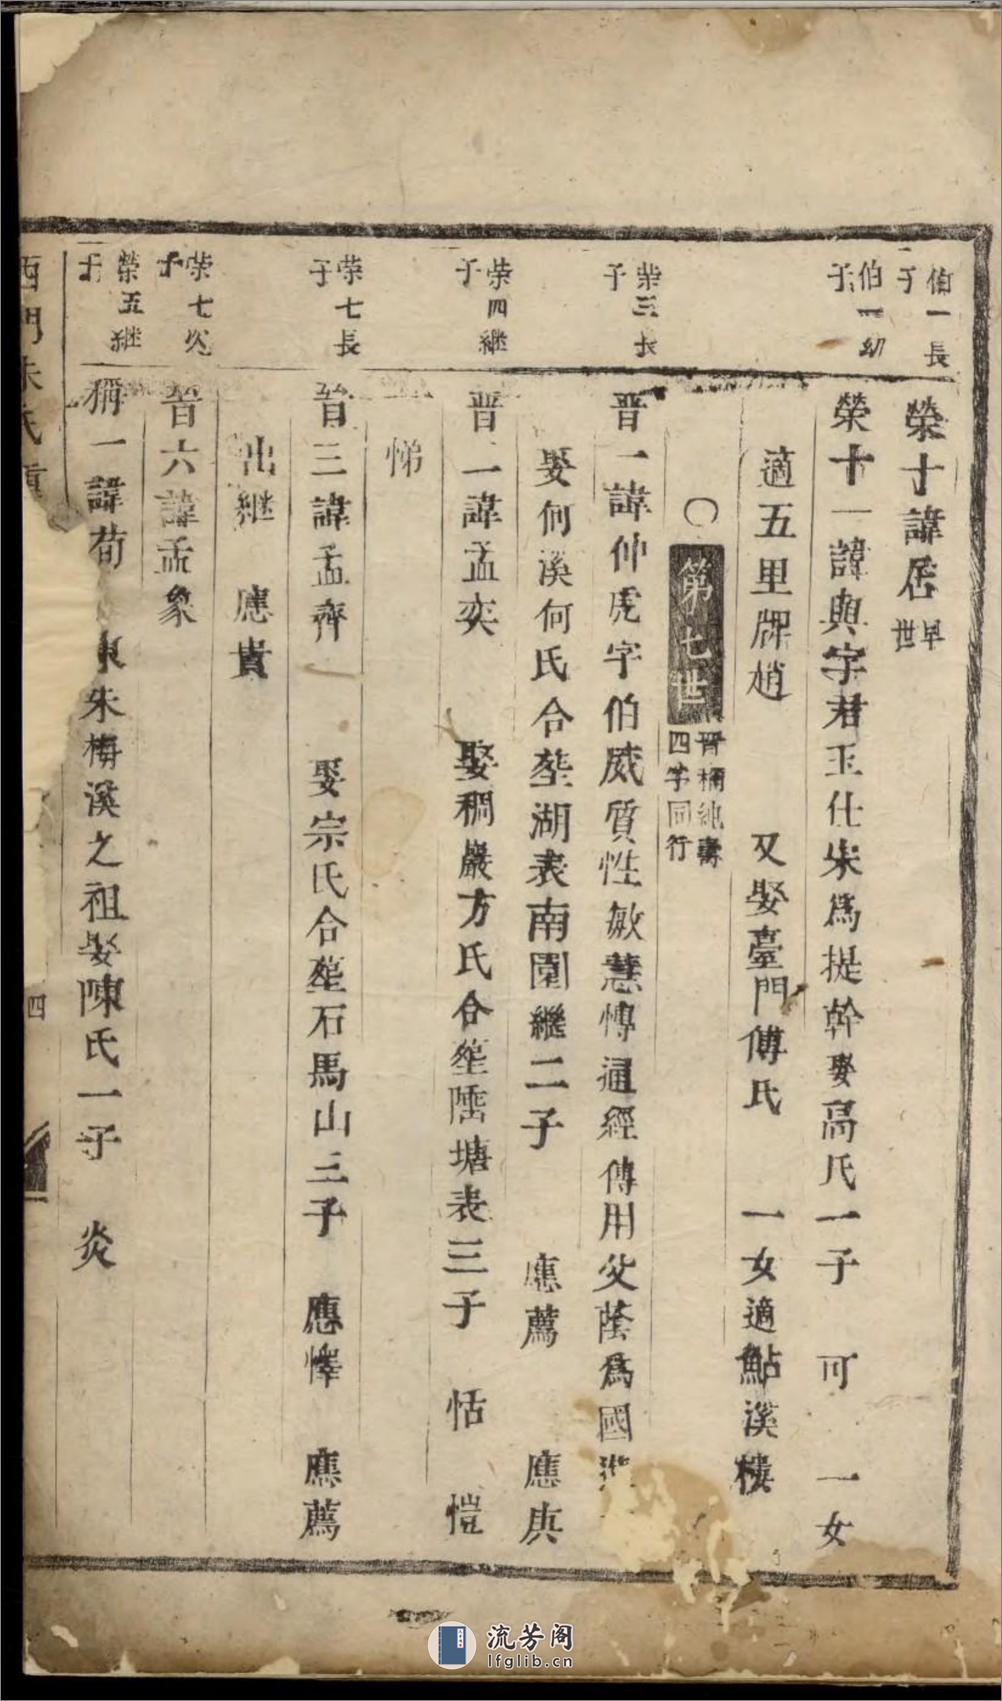 伯一長子
榮十諱居早世
伯一幼子
榮十一諱與字君玉仕宋爲提幹娶高氏一子 可 一女
適五里牌趙 又娶臺門傅氏 一女適鮎溪樓
〇第七世 晋稱純壽四字同行
荣三长子
晋一諱仲虎字伯威質性敏慧博通經傳用父蔭爲國
娶何溪何氏合塟湖表南園繼二子 應薦 應庚
荣四继子
晋一諱孟奕 娶稠巖方氏合塟陻塘表三子 恬 愷
悌
荣七長子
晋三諱孟齊 娶宗氏合塟石馬山三子 應懌 應薦
出继 應貴
荣七次子
晋六諱孟象
榮五继子
稱一諱荀 東朱梅溪之祖娶陳氏一子 炎
西門朱氏
四
流芳阁
lfglib.cn